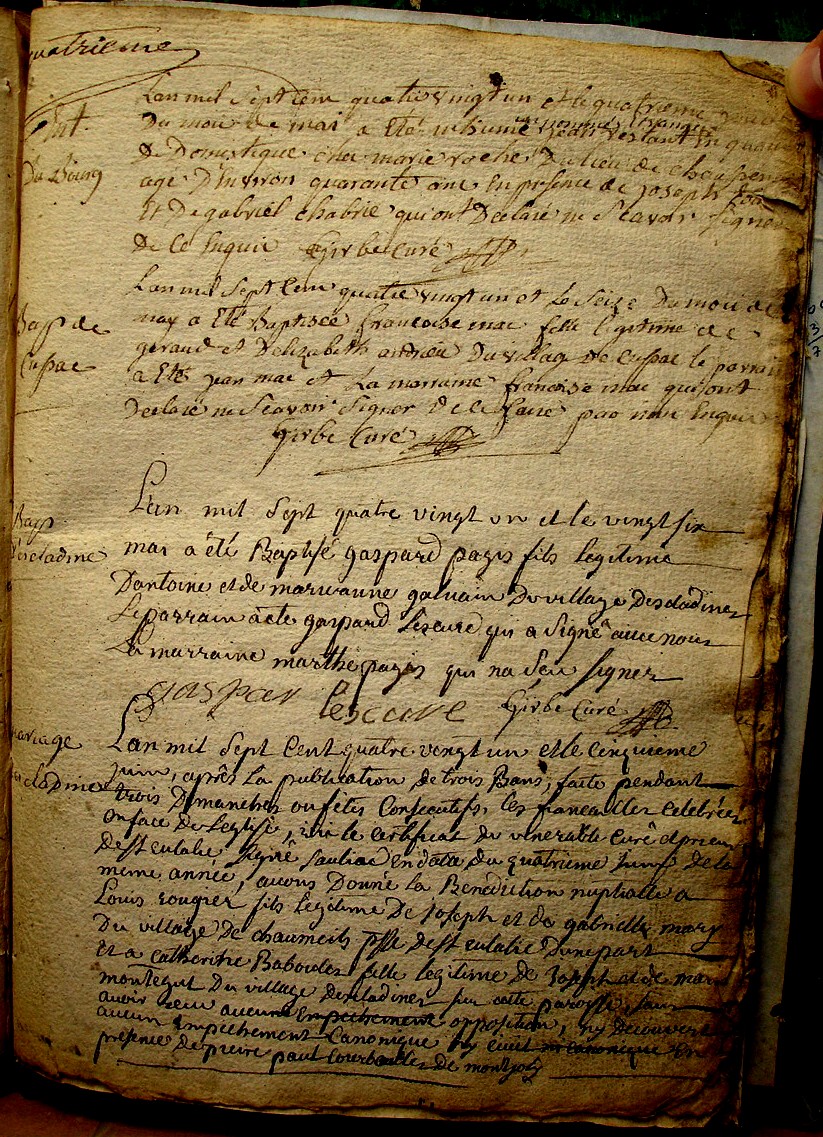 quatrieme
Ent.
Du Bourg
Lan mil sept cent quatre vingt un et le quatrieme
Du mois de mai a été inhumé un nommé jean restant en qualité
de Domestique chez marie roche Du lieu de
age D'environ quarante ans En presence de joseph
Et De gabriel chabrie qui ont Declaré ne Scavoir Signer
De ce Enquis Girbe Curé
Bapt de
Cussac
Lan mil sept cent quatre vingt un et le Seize Du mois de
may a Eté Baptisée francoise mac fille legitime de
geraud et D'elizabeth andrieu Du village de Cussac le parrain
a Eté jean mac et La marraine francoise mac qui ont
Declaré ne Scavoir Signer De ce faire par nous Enquis
Girbe Curé
Bapt
Descladines
Lan mil sept quatre vingt un et le vingt six
mai a été Baptisé gaspard pagis fils legitime
Dantoine et de marianne galvain Du village Descladines
Le parrain a eté gaspard Lescure qui a signé avec nous
La marraine marthe pagis qui na Seu signer
gaspar lescure Girbe Curé
mariage
cladines
Lan mil sept Cent quatre vingt un et le cinquieme
juin, après la publication de trois Bans, faite pendant
trois Dimanches ou fêtes Consecutifs, les fiancailles celebrées
en face de Leglise, vu le certificat du venerable curé et prieur
de st eulalie signé Sauliac en datte du quatrieme juin de la
meme année, avons Donné la Benediction nuptialle a
Louis rougier fils legitime De joseph et de gabrielle mary
Du village De chaumeils psse de st eulalie Dune part
et a catherine Baboules fille legitime de joseph et de marie
montegut Du village descladines sur cette paroisse, sans
avoir receu aucune Empechement opposition, ny decouvert
aucun Empechement Canonique ny civil ny canonique En
presence de pierre paul Courboulles de montjoly